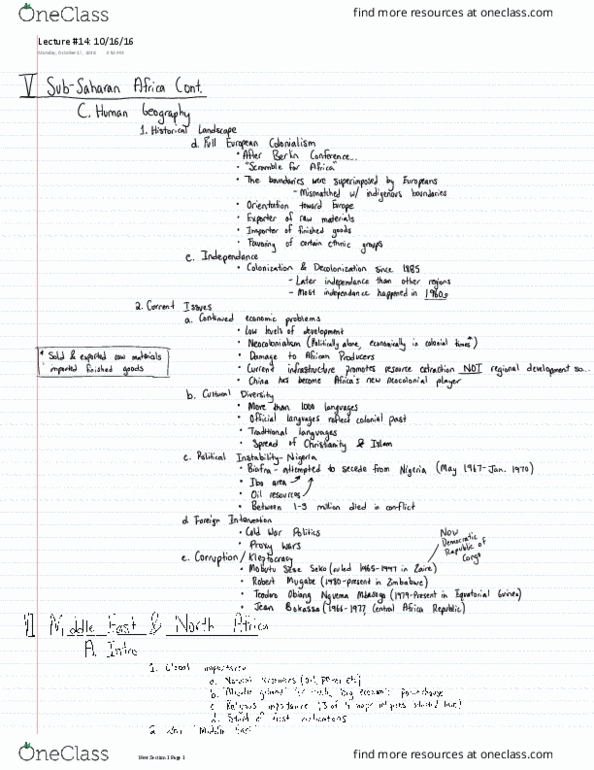 OneClass
find more resources at oneclass.com
Lecture #14: 10/16/16
V Sub-Saharan Africa Cont.
C. Human Geography
1. Historical Landscape
d. Full European Colonialism
• After Berlin Conference...
• "Scramble for Africa"
• The boundaries were superimposed by Europeans
- Mismatched w/ indigenous boundaries
• Orientation toward Europe
• Exporter of raw materials
• Importer of finished goods
• Favoring of certain ethnic groups
e. Independence
• Colonization & Decolonization since 1885
- Later independence than other regions
- Most independence happened in 1960s
2. Current Issues
a. Continued economic problems
• Low levels of development
• Neocolonialism (Politically alone, economically in colonial times*)
• Damage to African Producers
* Sold & exported raw materials
imported finished goods
• Current infrastructure promotes resource extraction NOT regional development so...
• China has become Africa's new neocolonial player
b. Cultural Diversity
• More than 1000 languages
• Official languages reflect colonial past
• Traditional languages
• Spread of Christianity & Islam
c. Political Instability- Nigeria
• Biafra - attempted to secede from Nigeria (May 1967-Jan. 1970)
• Ibo area
• Oil resources
• Between 1-3 million died in conflict
d. Foreign Intervention
• Cold War Politics
• Proxy wars
Now
Democratic
Republic of
Congo
e. Corruption/ Kleptocracy
• Mobutu Sese Seko (ruled 1965-1997 in Zaire)
• Robert Mugabe (1980-present in Zimbabwe)
• Teodoro Obiang Nguema Mbasogo (1979-Present in Equatorial Guinea)
• Jean Bokassa (1966-1977, Central Africa Republic)
VI Middle East & North Africa
A. Intro
1. Global importance
a. Natural resources (oil,
b.
c. Religious importance (3 of
d.
2. "Middle East"
OneClass
New Section 1 Page 1
find more resources at oneclass.com